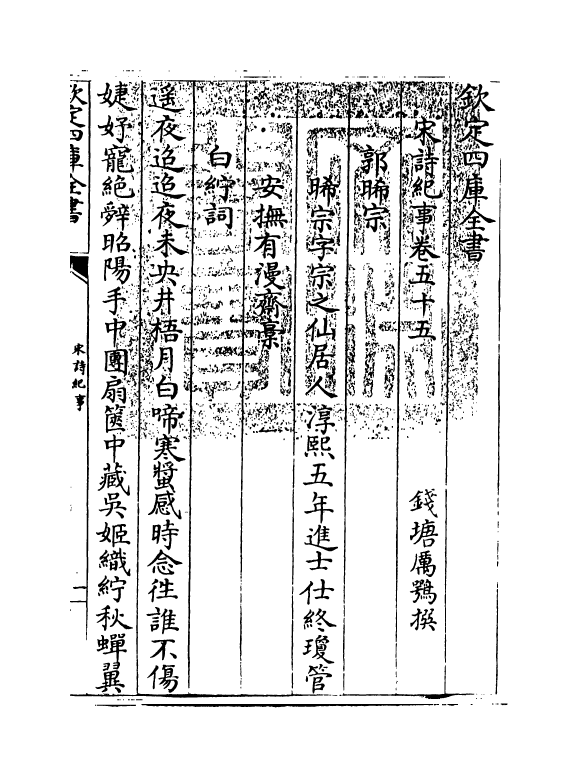 欽定四庫全書
宋詩紀事卷五十五
錢塘厲鶚撰
郭晞宗
晞宗字宗之仙居人淳熙五年進士仕終瓊管
安撫有漫齋稾
白紵詞
遥夜迢迢夜未央井梧月白啼寒螿感時念徃誰不傷
婕妤寵絶辭昭陽手中團扇篋中藏吳姬織紵秋蟬翼
欽定四庫全書
宋詩紀事
一